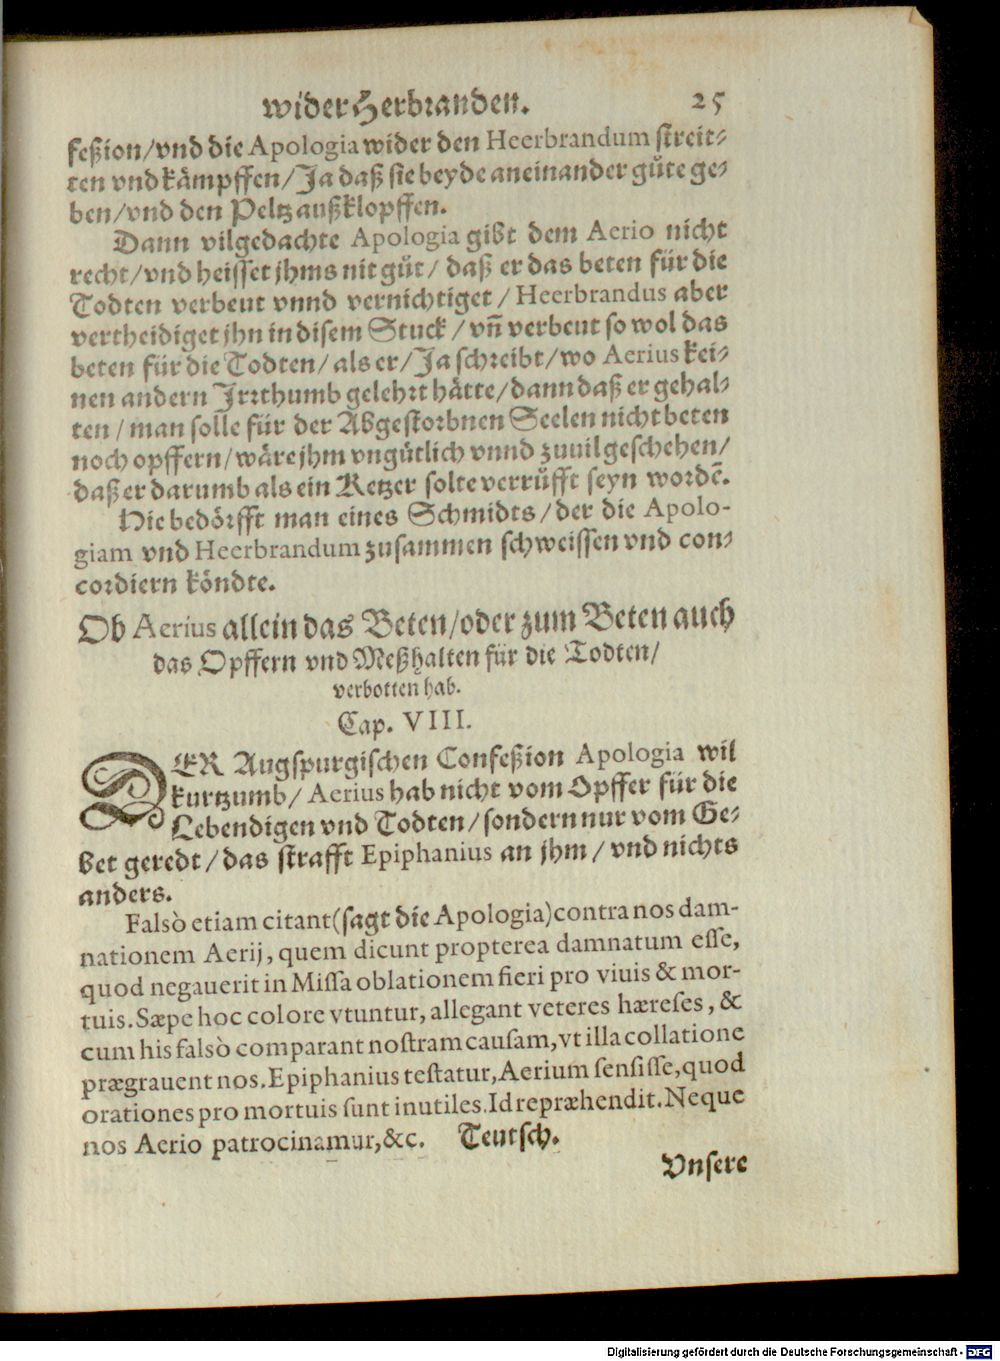 wider Herbranden. 25
feßion/vnd die Apologia wider den Heerbrandum streit-
ten vnd kämpffen/Ja daß sie beyde aneinander gůte ge-
ben/vnd den Peltz außklopffen.
Dann vilgedachte Apologia gibt dem Aerio nicht
recht/vnd heisset jhms nit gůt/ daß er das beten für die
Todten verbeut vnnd vernichtiget/Heerbrandus aber
vertheidiget jhn in disem Stuck/vñ verbeut so wol das
beten für die Todten/als er/Ja schreibt/wo Aerius kei-
nen andern Irrthumb gelehrt hätte/dann daß er gehal-
ten/man solle für der Abgestorbnen Seelen nicht beten
noch opffern/wäre jhm vngůtlich vnnd zuuil geschehen/
daß er darumb als ein Ketzer solte verrůfft seyn wordẽ.
Hie bedörfft man eines Schmidts/der die Apolo-
giam vnd Heerbrandum zusammen schweissen vnd con-
cordiern köndte.
Ob Aerius allein das Beten/oder zum Beten auch
das Opffern vnd Meßhalten für die Todten/
verbotten hab.
Cap. VIII.
DER Augspurgischen Confeßion Apologia wil
kurtzumb/Aerius hab nicht vom Opffer für die
Lebendigen vnd Todten/sondern nur vom Ge-
bet geredt/das strafft Epiphanius an jhm/vnd nichts
anders.
Falsò etiam citant(sagt die Apologia)contra nos dam-
nationem Aerij, quem dicunt propterea damnatum esse,
quod negauerit in Missa oblationem fieri pro viuis & mor-
tuis. Sæpe hoc colore vtuntur, allegant veteres hæreses, &
cum his falsò comparant nostram causam, vt illa collatione
prægrauent nos. Epiphanius testatur, Aerium sensisse, quod
orationes pro mortuis sunt inutiles. Id repræhendit. Neque
nos Aerio patrocinamur, &c. Teutsch.
Vnsere
Digitalisierung gefördert durch die Deutsche Forschungsgemeinschaft - DFG